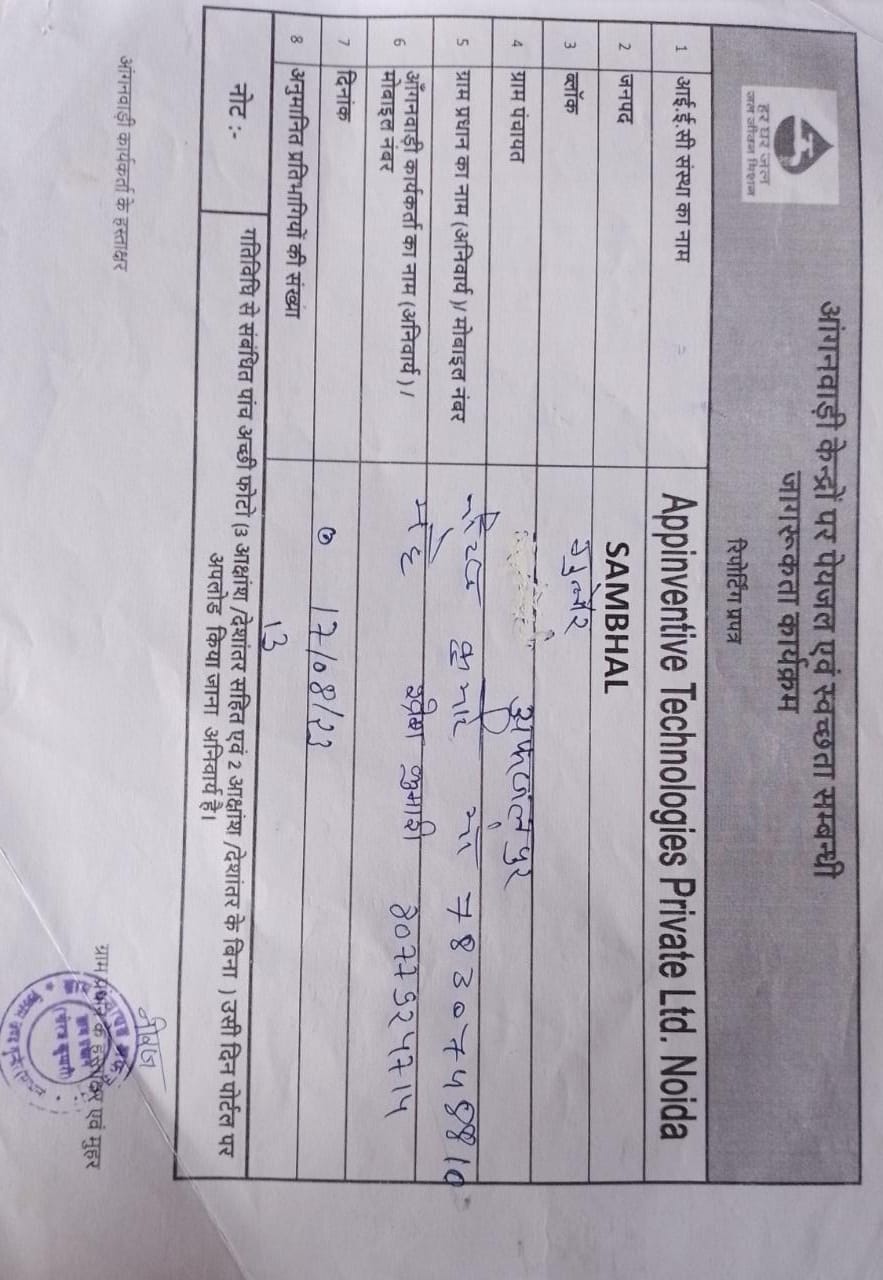 हर घर जल
जल जीवन मिशन
आंगनवाड़ी केन्द्रों पर पेयजल एवं स्वच्छता सम्बन्धी
जागरूकता कार्यक्रम
रिपोर्टिंग प्रपत्र
1 आई.ई.सी संस्था का नाम Appinventive Technologies Private Ltd. Noida
2 जनपद SAMBHAL
3 ब्लॉक गुन्नौर
4 ग्राम पंचायत
5 ग्राम प्रधान का नाम (अनिवार्य )/ मोबाइल नंबर कुमारी
6 आँगनवाड़ी कार्यकर्ता का नाम (अनिवार्य ) /
मोबाइल नंबर कुमारी
7 दिनांक 17/08/23
8 अनुमानित प्रतिभागियों की संख्या 13
नोट :- गतिविधि से संबंधित पांच अच्छी फोटो (3 आक्षांश /देशांतर सहित एवं 2 आक्षांश /देशांतर के बिना ) उसी दिन पोर्टल पर
अपलोड किया जाना अनिवार्य है।
आंगनवाड़ी कार्यकर्ता के हस्ताक्षर
ग्राम प्रधान के हस्ताक्षर एवं मुहर